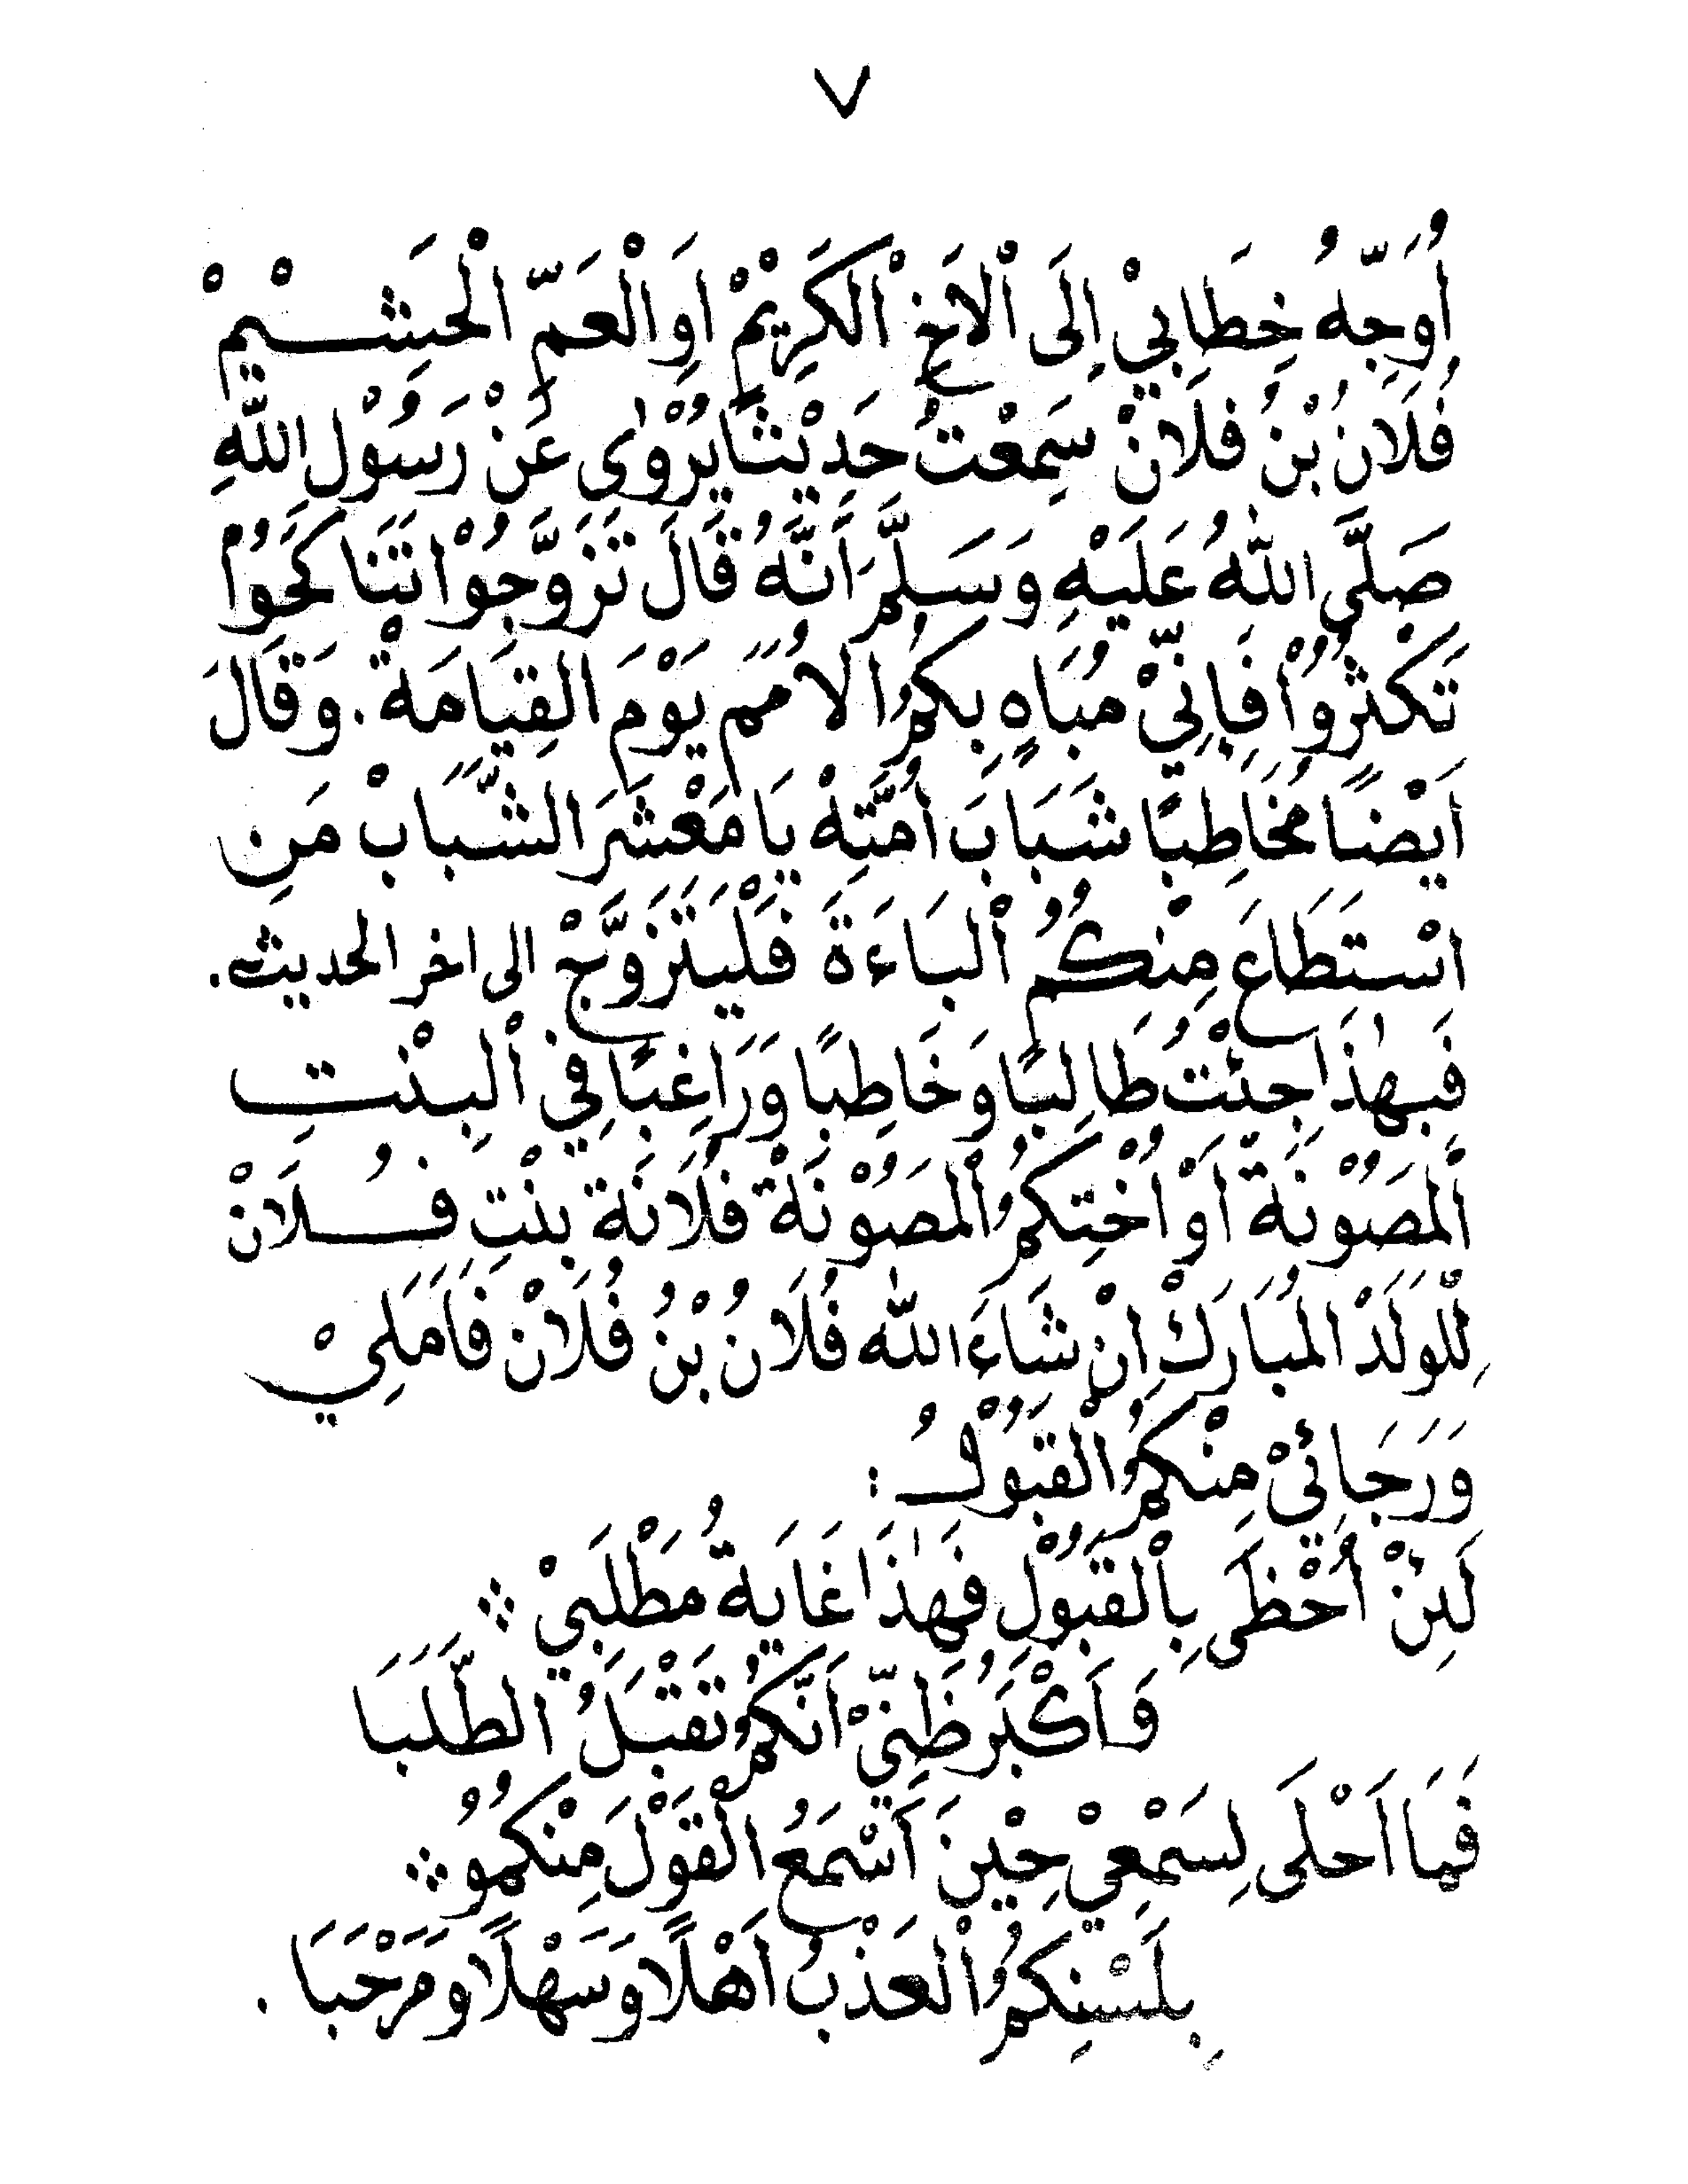 ٧
أُوَجِّهُ خِطَابِيْ إِلَى اْلاَخِ اْلكَرِيْمْ اَوِ الْعَمِّ الْحَشِيْمْ
فُلَانُ بْنُ فُلَانْ سَمِعْتُ حَدِيْثًا يُرْوٰى عَنْ رَسُوْلِ اللّٰهِ
صَلَّى اللّٰهُ عَلَيْهِ وَسَلَّمَ اَنَّهُ قَالَ تَزَوَّجُوْا تَنَاكَحُوْا
تَكْثُرُوْا فَاِنِّيْ مُبَاهٍ بِكُمُ الاُمَمَ يَوْمَ الْقِيَامَةْ. وَقَالَ
اَيْضًا مُخَاطِبًا شَبَابَ اُمَّتِهْ يَا مَعْشَرَ الشَّبَابْ مَنِ
اسْتَطَاعَ مِنْكُمُ اْلبَاءَةَ فَلْيَتَزَوَّجْ الى اخر الحديث.
فَبِهٰذَا جِئْتُ طَالِبًا وَخَاطِبًا وَرَاغِبًا فِي اْلبِنْتِ
اْلمَصُوْنَةْ اَوْ اُخْتِكُمُ اْلمَصُوْنَةْ فُلَانَة بِنْتِ فُلَانْ
لِلْوَلَدْ الْمُبَارَكْ اِنْ شَاءَ اللّٰه فُلَانُ بْنُ فُلَانْ فَاَمَلِيْ
وَرَجَائِيْ مِنْكُمُ الْقَبُوْلُ :
لَئِنْ اُحْظَى بِاْلقَبُوْلِ فَهٰذَا غَايَةُ مَطْلَبِيْ ؞
وَاَكْبَرُ ظَنِّيْ اَنَّكُمْ تَقْبَلُ الطَّلَبَا
فَمَا اَحْلَى لِسَمْعِيْ حِيْنَ اَسْمَعُ الْقَوْلَ مِنْكُمُو ؞
بِلَسْنِكُمُ اْلعَذْبُ اَهْلًا وَسَهْلًا وَمَرْحَبَا .